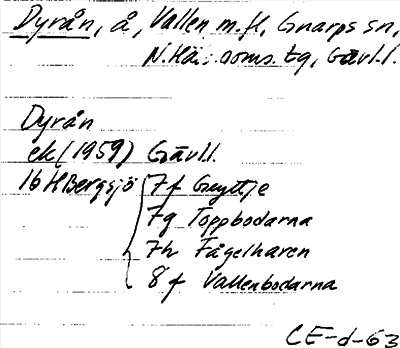 Dyrån, å, Vallen m.fl, Gnarps sn,
N.Hä: doms. tg, Gävl.l.
Dyrån
ek (1959) Gävl.l.
16 H Bergsjö 7f
7g Toppbodarna
7h Fågelharen
8f Vallenbodarna
CE-d-63